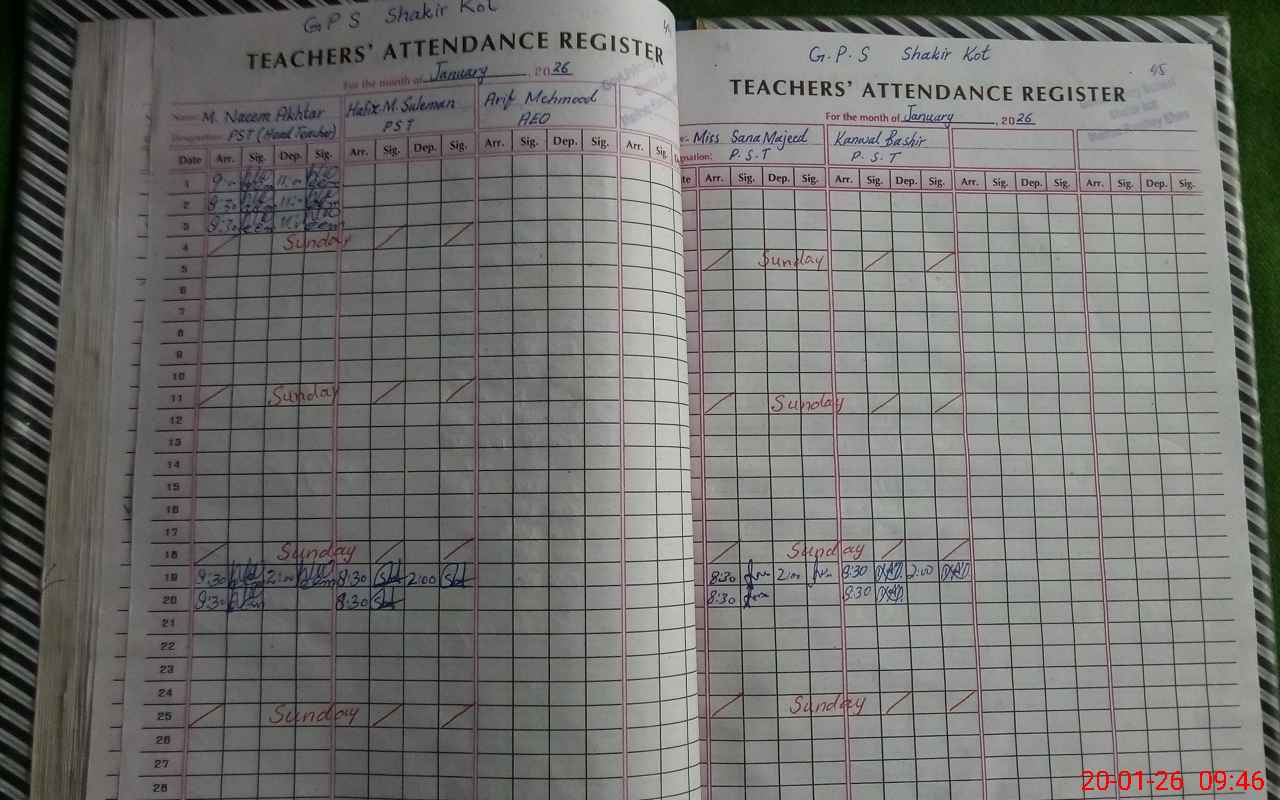 G.P.S Shakir Kot
TEACHERS' ATTENDANCE REGISTER
For the month of January, 2026
Name: M. Naeem Akhtar Hafiz M. Suleman Arif Mehmood
Designation: PST (Head Teacher) PST AEO
Date Arr. Sig. Dep. Sig. Arr. Sig. Dep. Sig. Arr. Sig. Dep. Sig. Arr. Sig.
1 9:00 11:00
2 9:30 11:00
3 9:30 11:00
4 Sunday
5
6
7
8
9
10
11 Sunday
12
13
14
15
16
17
18 Sunday
19 8:30 2:00 8:30 2:00
20 8:30 8:30
21
22
23
24
25 Sunday
26
27
28
G.P.S Shakir Kot
45
TEACHERS' ATTENDANCE REGISTER
For the month of January, 2026
Miss Sana Majeed Kanwal Bashir
P.S.T P.S.T
Arr. Sig. Dep. Sig. Arr. Sig. Dep. Sig. Arr. Sig. Dep. Sig. Arr. Sig. Dep. Sig.
Sunday
Sunday
Sunday
8:30 2:00 8:30 2:00
8:30 8:30
Sunday
20-01-26 09:46